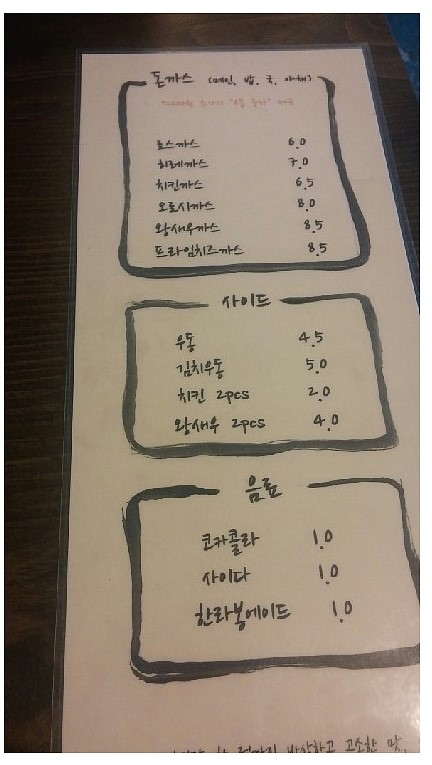 돈까스 (메인, 밥, 국, 야채)
로스까스 6.0
히레까스 7.0
치킨까스 6.5
오로시까스 8.0
왕새우까스 8.5
프라임치즈까스 8.5
사이드
우동 4.5
김치우동 5.0
치킨 2pcs 2.0
왕새우 2pcs 4.0
음료
코카콜라 1.0
사이다 1.0
한라봉에이드 1.0
바삭하고 고소한 맛,